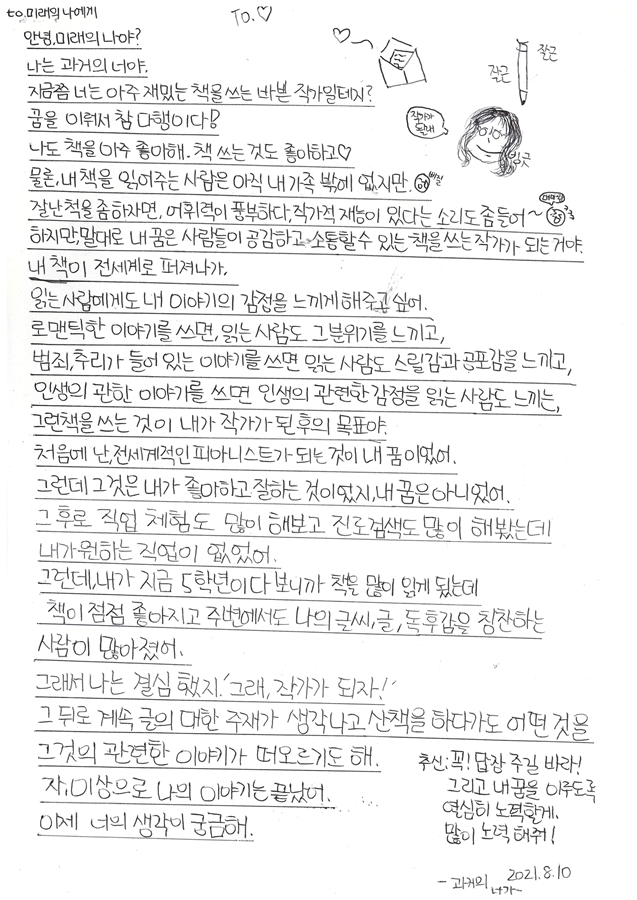 to.미래의 나에게
To.♡
안녕, 미래의 나야?
나는 과거의 너야.
지금쯤 너는 아주 재밌는 책을 쓰는 바쁜 작가일테지?
꿈을 이뤄서 참 다행이다!
나도 책을 아주 좋아해. 책 쓰는 것도 좋아하고♡
물론, 내 책을 읽어주는 사람은 아직 내 가족 밖에 없지만.
잘난척을 좀 하자면, 어휘력이 풍부하다, 작가적 재능이 있다는 소리도 좀 들어~
하지만, 말대로 내 꿈은 사람들이 공감하고 소통할 수 있는 책을 쓰는 작가가 되는거야.
내 책이 전세계로 퍼져나가,
읽는 사람에게도 내 이야기의 감정을 느끼게 해주고 싶어.
로맨틱한 이야기를 쓰면, 읽는 사람도 그 분위기를 느끼고,
범죄, 추리가 들어 있는 이야기를 쓰면 읽는 사람도 스릴감과 공포감을 느끼고,
인생의 관한 이야기를 쓰면 인생의 관련한 감정을 읽는 사람도 느끼는,
그런책을 쓰는 것이 내가 작가가 된 후의 목표야.
처음에 난, 전세계적인 피아니스트가 되는 것이 내 꿈이었어.
그런데 그것은 내가 좋아하고 잘하는 것이었지, 내 꿈은 아니었어.
그 후로 직업 체험도 많이 해보고 진로검색도 많이 해봤는데
내가 원하는 직업이 없었어.
그런데, 내가 지금 5학년이다 보니까 책을 많이 읽게 됬는데
책이 점점 좋아지고 주변에서도 나의 글씨, 글, 독후감을 칭찬하는
사람이 많아졌어.
그래서 나는 결심 했지. '그래, 작가가 되자!'
그 뒤로 계속 글의 대한 주재가 생각나고 산책을 하다가도 어떤 것을
그것의 관련한 이야기가 떠오르기도 해.
자, 이상으로 나의 이야기는 끝났어.
이제 너의 생각이 궁금해.
추신: 꼭! 답장 주길 바라!
그리고 내 꿈을 이루도록
열심히 노력할게.
많이 노력 해줘!
2021.8.10
-과거의 너가-
작가가 될래
빙긋
쫄근
쫄근
삐질